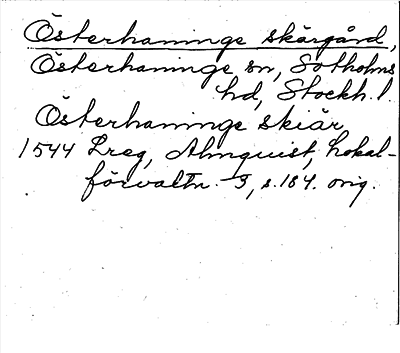 Österhaninge skärgård,
Österhaninge sn, Sotholms
hd, Stockh. l.
Österhaninge skiär
1544 Lreg, Almquist, Lokal-
förvaltn. I3, s. 184. orig.